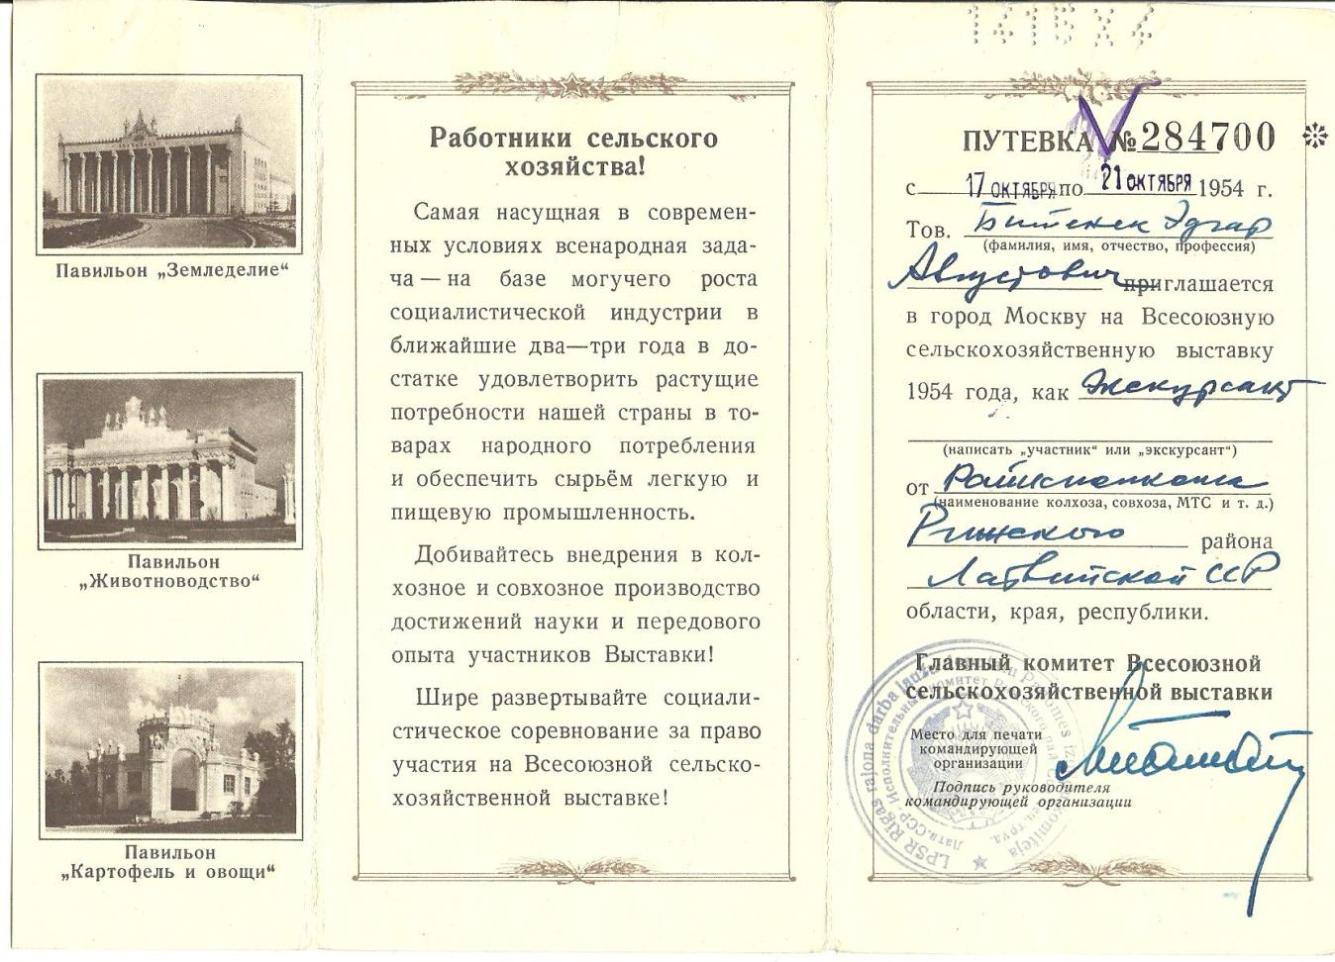 Павильон „Земледелие“
Павильон
„Животноводство“
Павильон
„Картофель и овощи“
Работники сельского
хозяйства!
Самая насущная в современ-
ных условиях всенародная зада-
ча — на базе могучего роста
социалистической индустрии в
ближайшие два—три года в до-
статке удовлетворить растущие
потребности нашей страны в то-
варах народного потребления
и обеспечить сырьём легкую и
пищевую промышленность.
Добивайтесь внедрения в кол-
хозное и совхозное производство
достижений науки и передового
опыта участников Выставки!
Шире развертывайте социали-
стическое соревнование за право
участия на Всесоюзной сельско-
хозяйственной выставке!
ПУТЕВКА № 284700
с 17 ОКТЯБРЯ по 21 ОКТЯБРЯ 1954 г.
Тов. Эдгар
(фамилия, имя, отчество, профессия)
Августович приглашается
в город Москву на Всесоюзную
сельскохозяйственную выставку
1954 года, как экскурсант
(написать „участник“ или „экскурсант“)
от
(наименование колхоза, совхоза, МТС и т. д.)
Рижского района
Латвийской ССР
области, края, республики.
Главный комитет Всесоюзной
сельскохозяйственной выставки
Место для печати
командирующей
организации
Подпись руководителя
командирующей организации
LPSR Rīgas rajona darba ļaužu